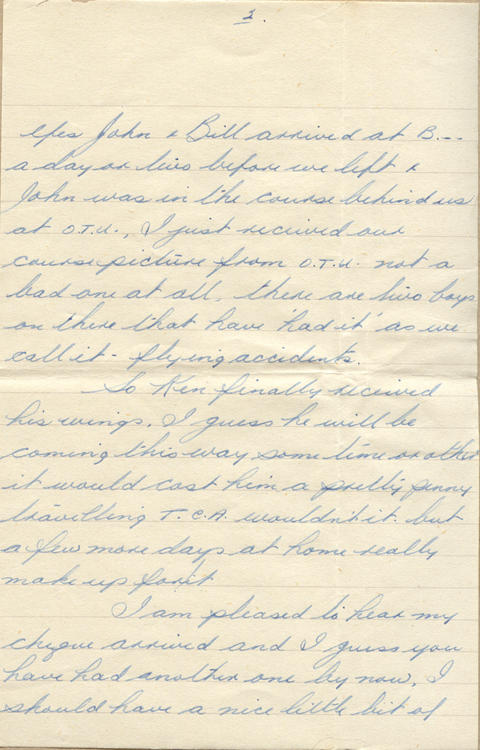 2.
Yes John & Bill arrived at B...
a day or two before we left &
John was in the course behind us
at O.T.U., I just recived our
course picture from O.T.U. not a
bad one at all, there are two boys
on there that have 'had it' as we
call it - flying accidents.
So Ken finally received
his wings. I guess he will be
coming this way some time or other
it would cost him a pretty penny
travilling T.C.A. wouldn't it. but
a few more days at home really
make up for it
I am pleased to hear my
cheque arrived and I guess you
have had another one by now, I
should have a nice little bit of